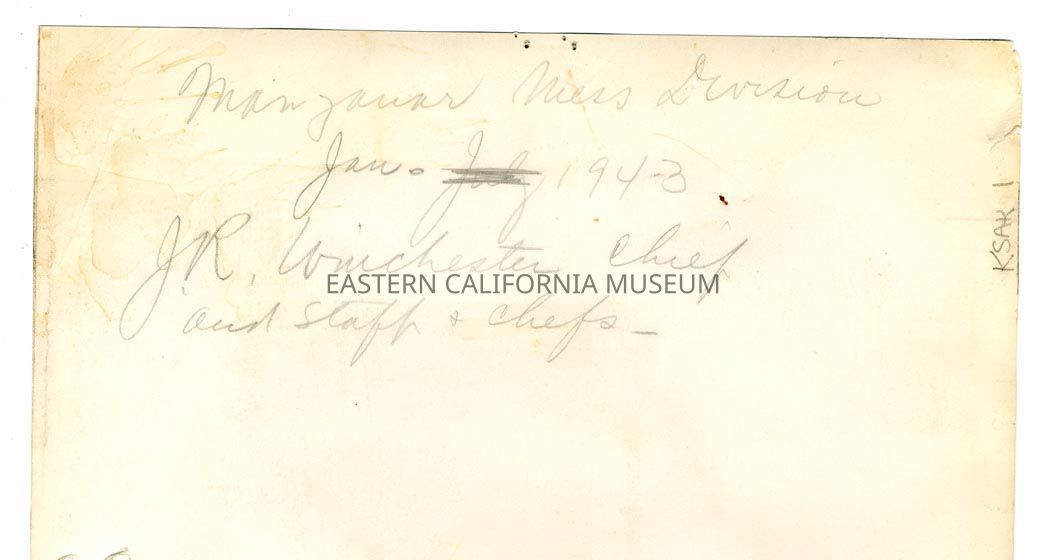 Manzanar Mess Division
Jan. July 1943
J.R. Winchester Chief
EASTERN CALIFORNIA MUSEUM
and staff & chefs -
KSAK 1